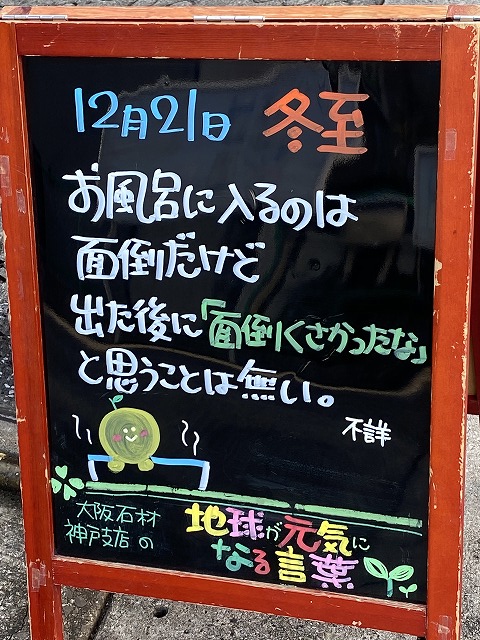 12月21日 冬至
お風呂に入るのは
面倒だけど
出た後に「面倒くさかったな」
と思うことは無い。
不詳
大阪石材
神戸支店の
地球が元気に
なる言葉